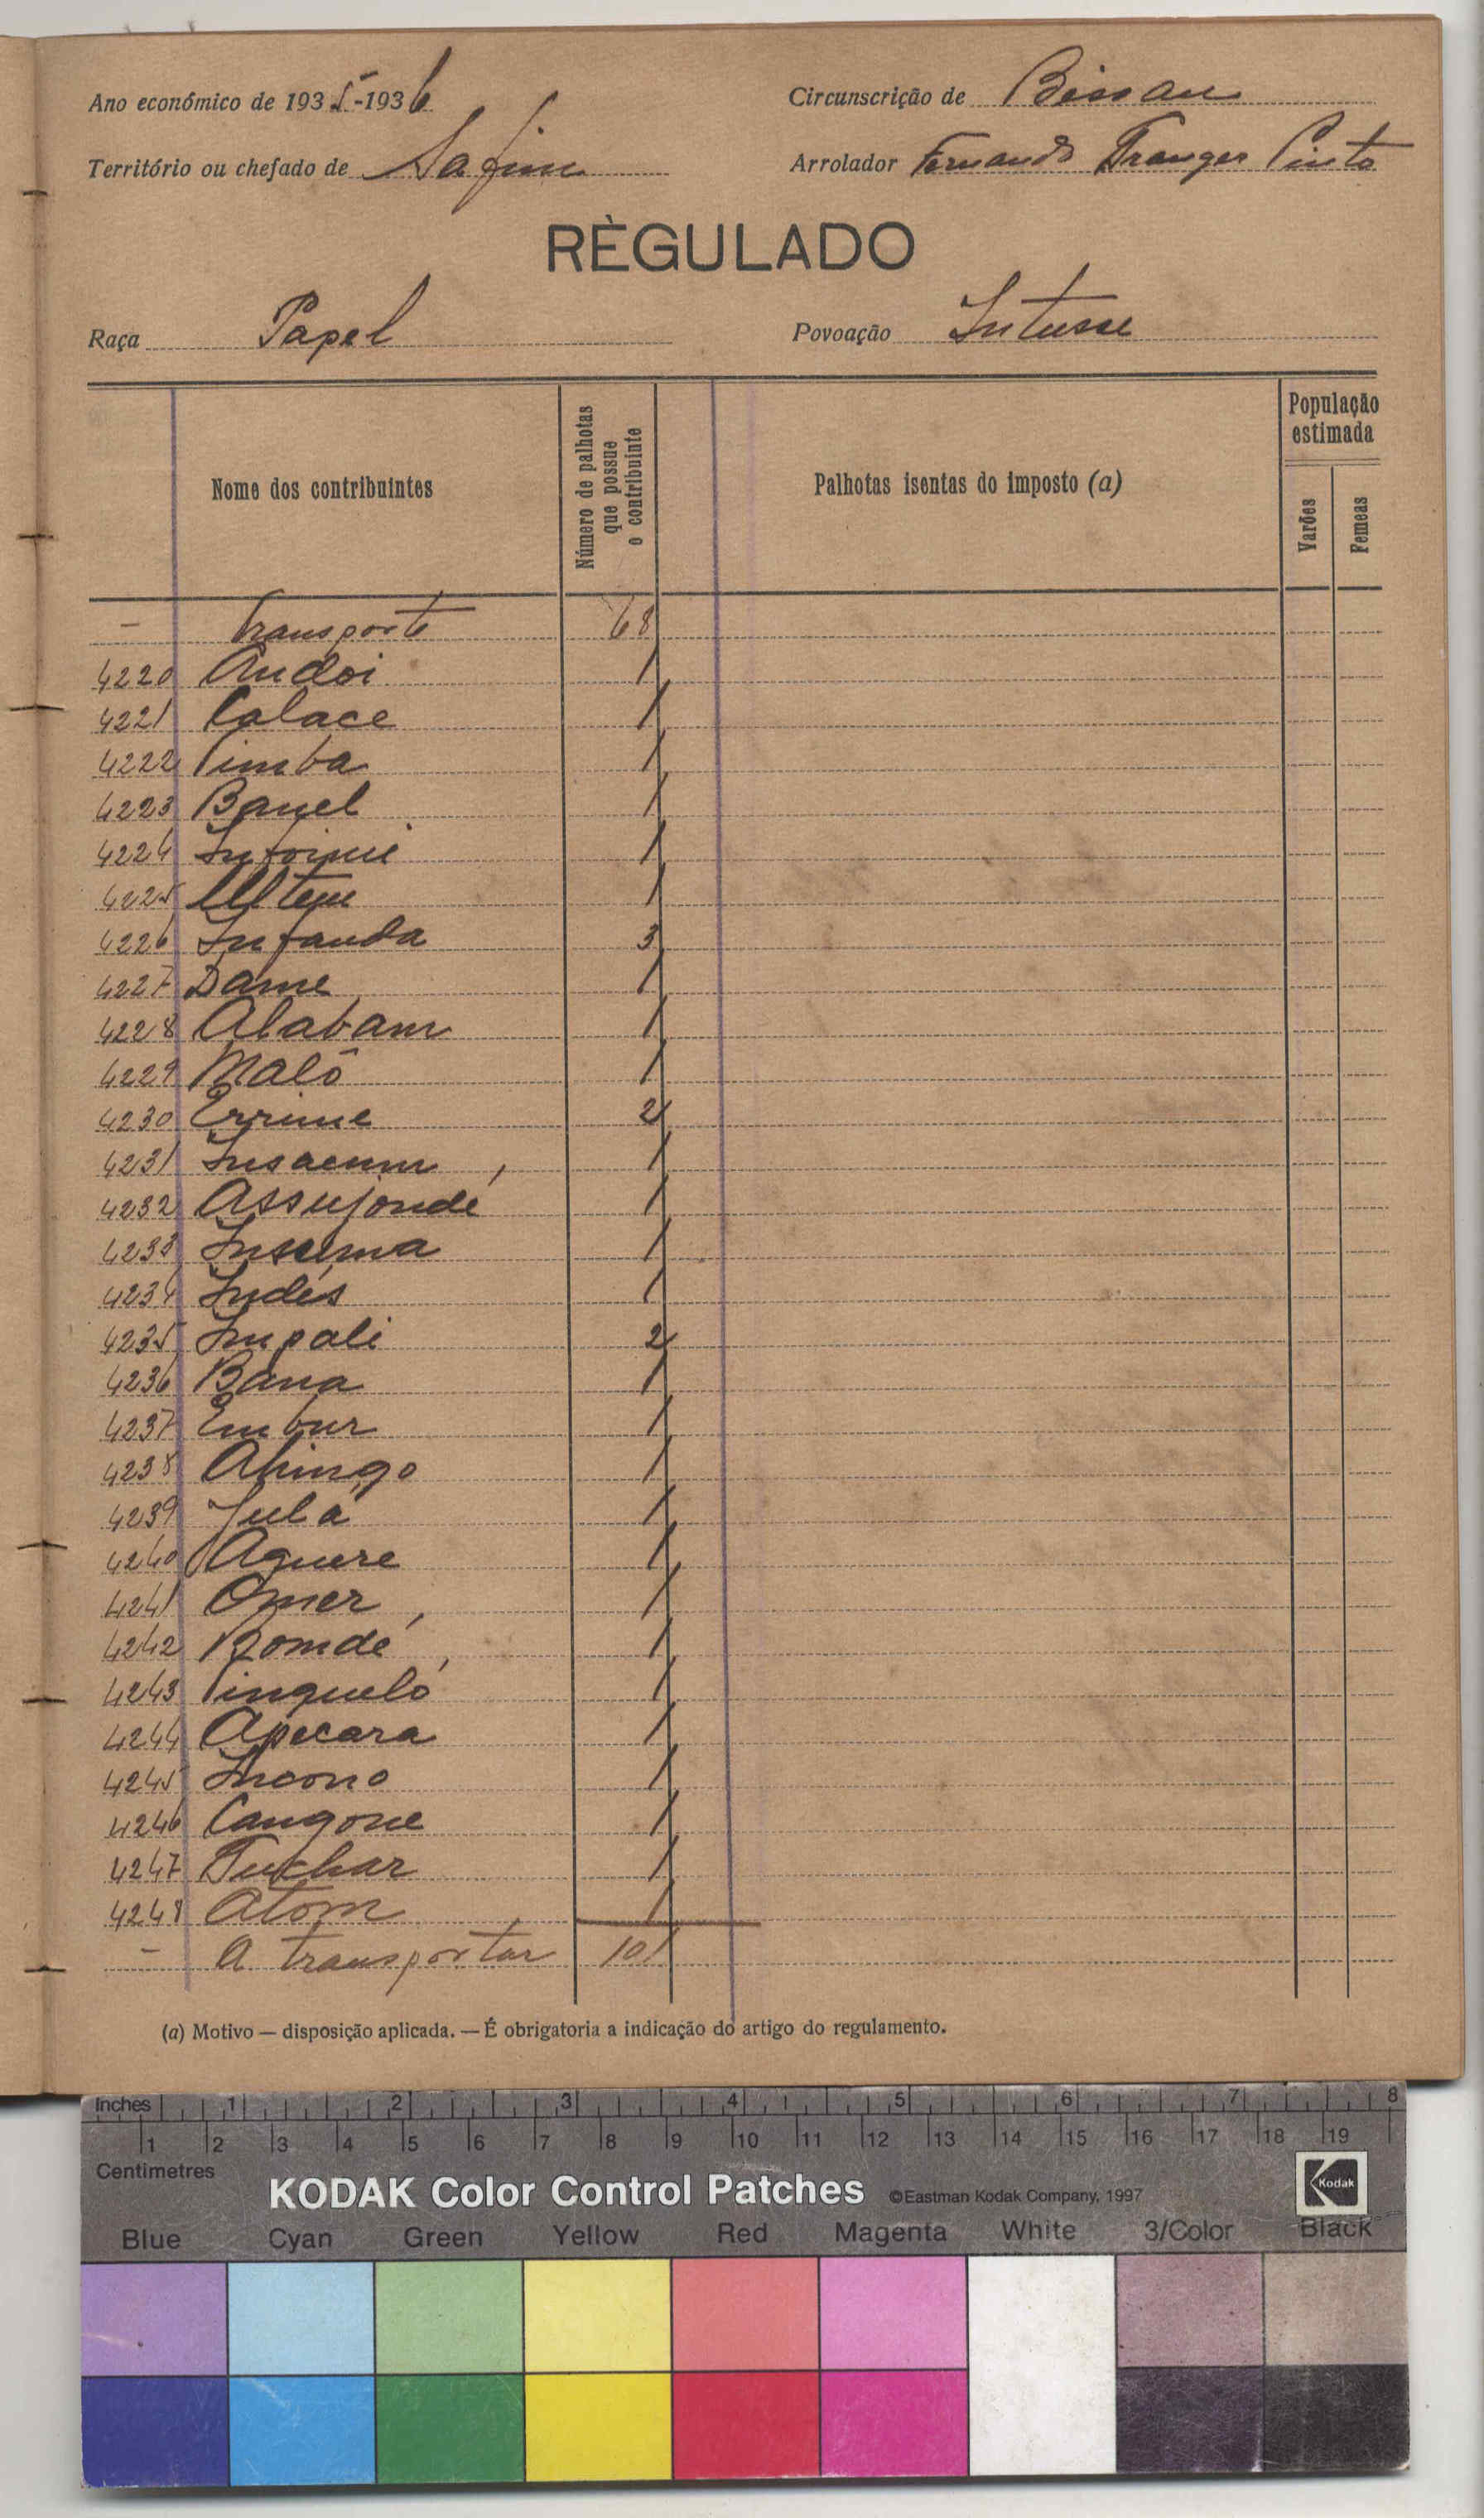 Ano económico de 1935-1936
Circunscrição de Bissau
Território ou chefado de Safim
Arrolador Fernando Pinto
RÈGULADO
Raça Papel
Povoação Intusse
Nome dos contribuintes
Número de palhotas que possue o contribuinte
Palhotas isentas do imposto (a)
População estimada
Varões
Femeas
- Transporte 68
4220 Andoi 1
4221 Calace 1
4222 Pimba 1
4223 Banel 1
4224 1
4225 1
4226 Infanda 3
4227 Dame 1
4228 Alabam 1
4229 Malô 1
4230 Errime 2
4231 1
4232 Assujondé 1
4233 Insema 1
4234 Indés 1
4235 Impali 2
4236 Bana 1
4237 Embur 1
4238 Ahingo 1
4239 Julá 1
4240 Aguere 1
4241 Omer 1
4242 Romdé 1
4243 Pinqueló 1
4244 Apecara 1
4245 Incono 1
4246 Cangone 1
4247 Tuchar 1
4248 Atom 1
- A transportar 101
(a) Motivo — disposição aplicada. — É obrigatoria a indicação do artigo do regulamento.
Inches 1 2 3 4 5 6 7 8
1 2 3 4 5 6 7 8 9 10 11 12 13 14 15 16 17 18 19
Centimetres
KODAK Color Control Patches ©Eastman Kodak Company, 1997 Kodak
Blue Cyan Green Yellow Red Magenta White 3/Color Black